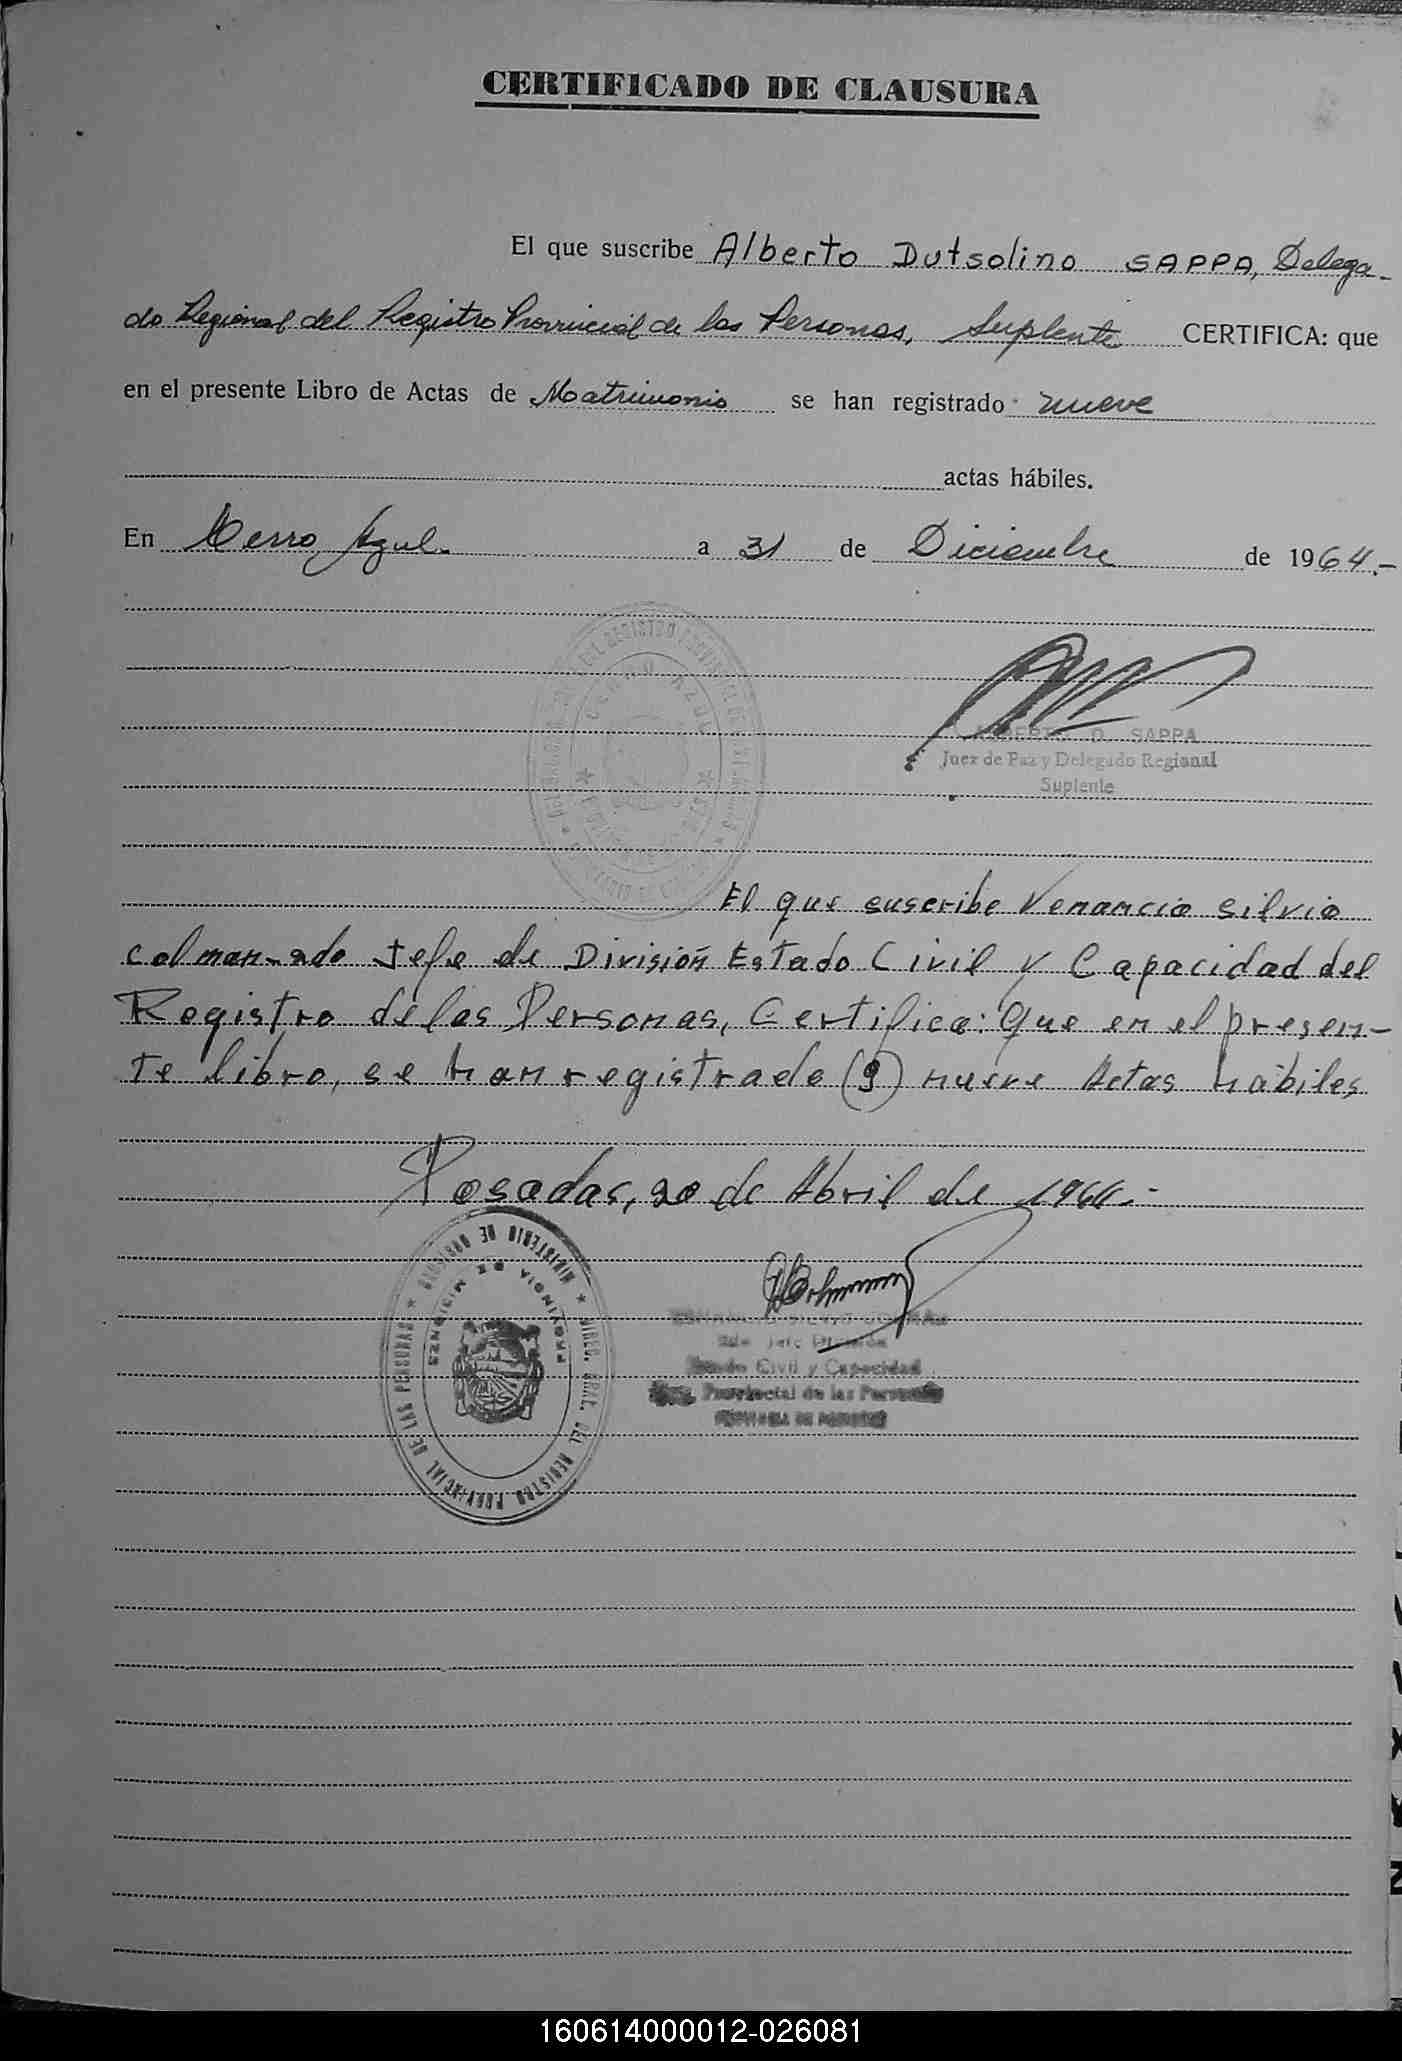 CERTIFICADO DE CLAUSURA
El que suscribe Alberto Dutsolino SAPPA, Delega-
do Regional del Registro Provincial de las Personas, Suplente CERTIFICA: que
en el presente Libro de Actas de Matrimonio se han registrado nueve
actas hábiles.
En Cerro Azul. a 31 de Diciembre de 1964.-
CERRO AZUL
D. SAPPA
Juez de Paz y Delegado Regional
Suplente
El que suscribe Venancio Silvio
Colman-2do Jefe de División Estado Civil y Capacidad del
Registro de las Personas, Certifica: Que en el presen-
te libro, se han registrado (9) nueve Actas hábiles
Posadas, 20 de Abril de
MINISTERIO DE GOBIERNO * DIREC. GRAL. DEL REGISTRO PROVINCIAL DE LAS PERSONAS *
PROVINCIA DE MISIONES
2do Jefe División
Estado Civil y Capacidad
Reg. Provincial de las Personas
PROVINCIA DE MISIONES
160614000012-026081